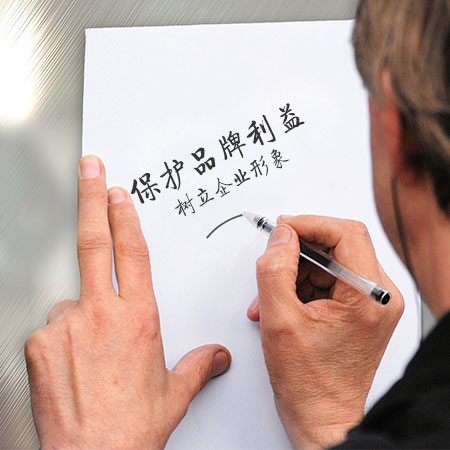 保护品牌利益
树立企业形象